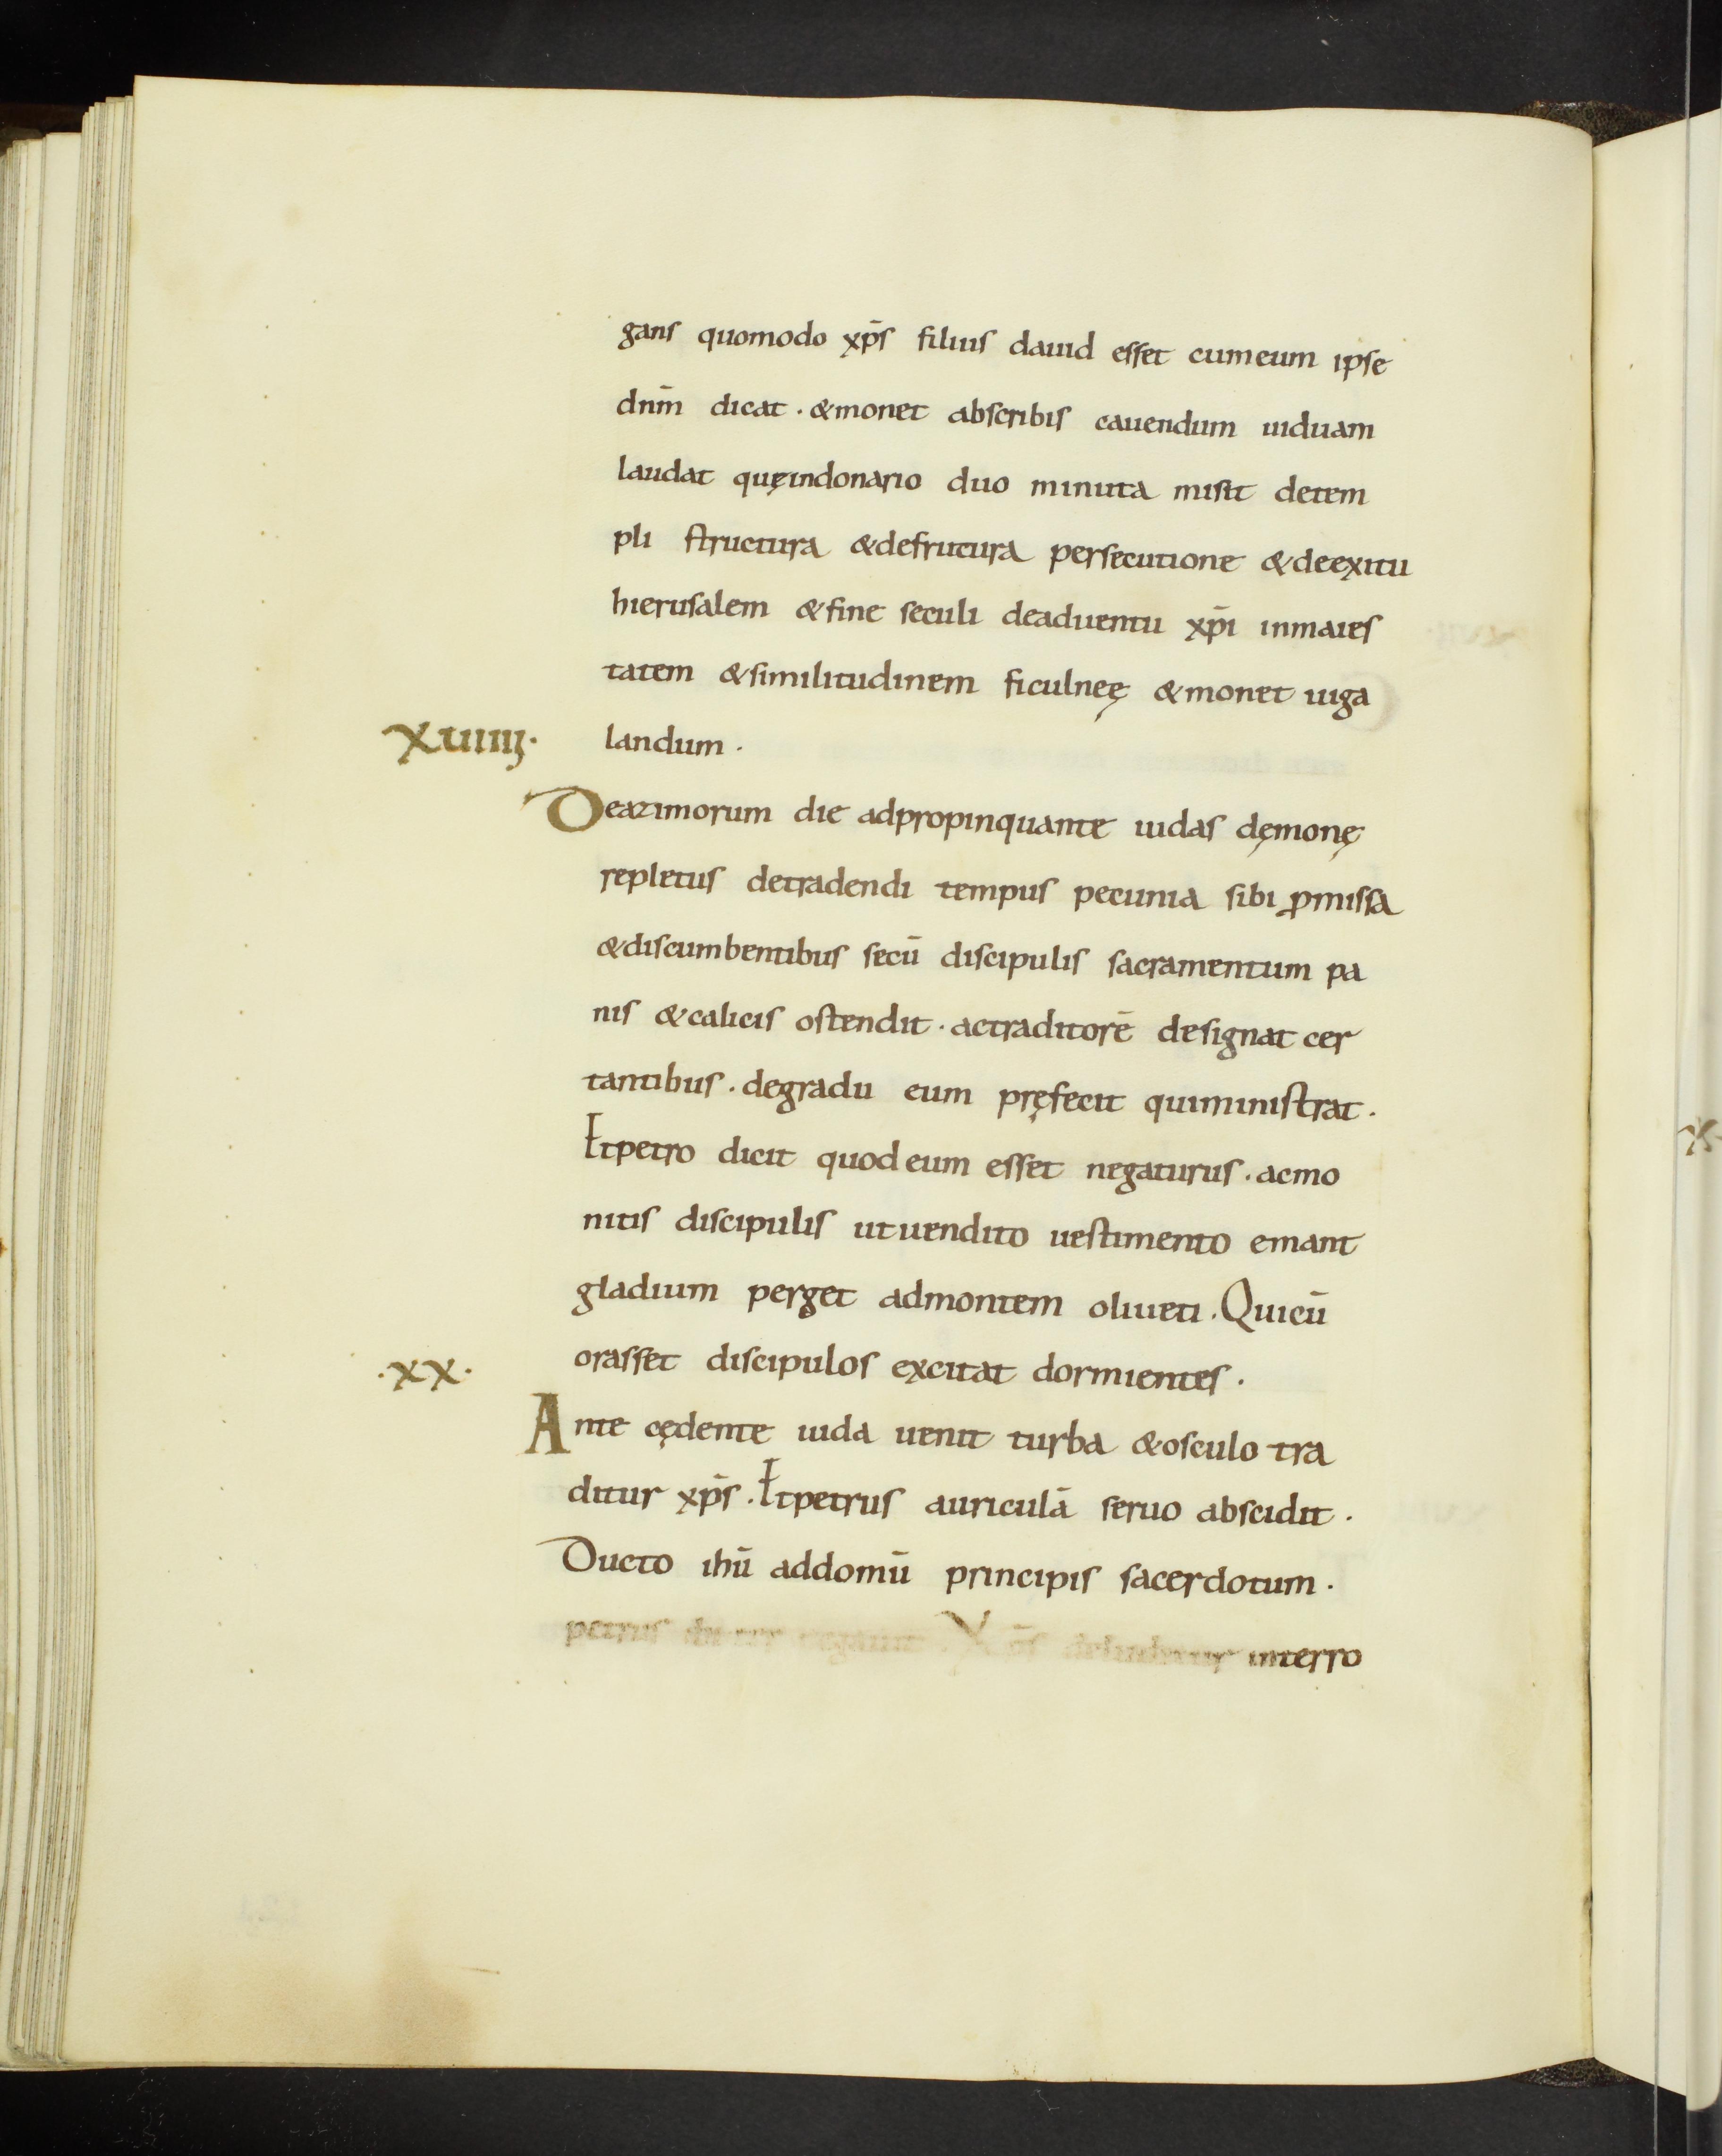 gans quomodo xp̄s filius dauid esset cumeum ipse
dnm̄ dicat · &monet abscribis cauendum uiduam
laudat quęindonario duo minuta misit detem
pli structura &defrutura persecutione &deexitu
hierusalem &fine seculi deaduentu xp̄i inmaies
tatem &similitudinem ficulneę &monet uiga
XUIIII· landum ·
Deazimorum die adpropinquante iudas dęmonę
repletus detradendi tempus pecunia sibi ꝓmissa
&discumbentibus secū discipulis sacramentum pa
nis &calicis ostendit · actraditorē designat cer
tantibus · degradu eum pręfecit quiministrat ·
Etpetro dicit quodeum esset negaturus · acmo
nitis discipulis utuendito uestimento emant
gladium perget admontem oliueti · Quicū
·XX· orasset discipulos excitat dormientes ·
Ante cędente iuda uenit turba &osculo tra
ditur xp̄s · Etpetrus auriculā seruo abscidit ·
Ducto ihū addomū principis sacerdotum ·
petrus interro